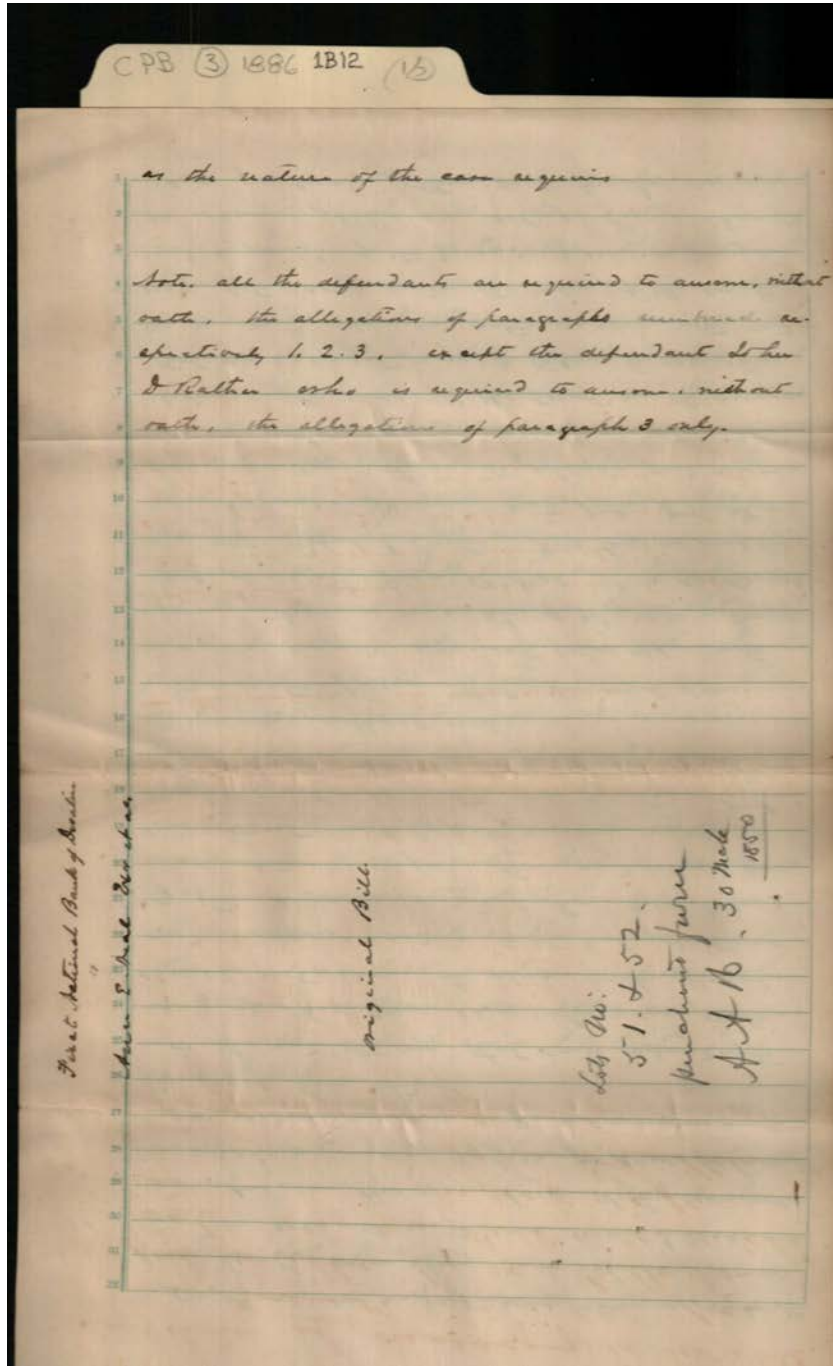 CPB ③ 1886 1B12 (15)
as the nature of the case requires
Note. all the defendants are required to answer, without
oath, the allegations of paragraphs numbered re-
spectively 1. 2. 3. except the defendant John
D Rather who is required to answer, without
oath, the allegations of paragraph 3 only.
First National Bank of Decatur
vs
Original Bill
Lots No:
51. & 52.
A A B. 30
1850